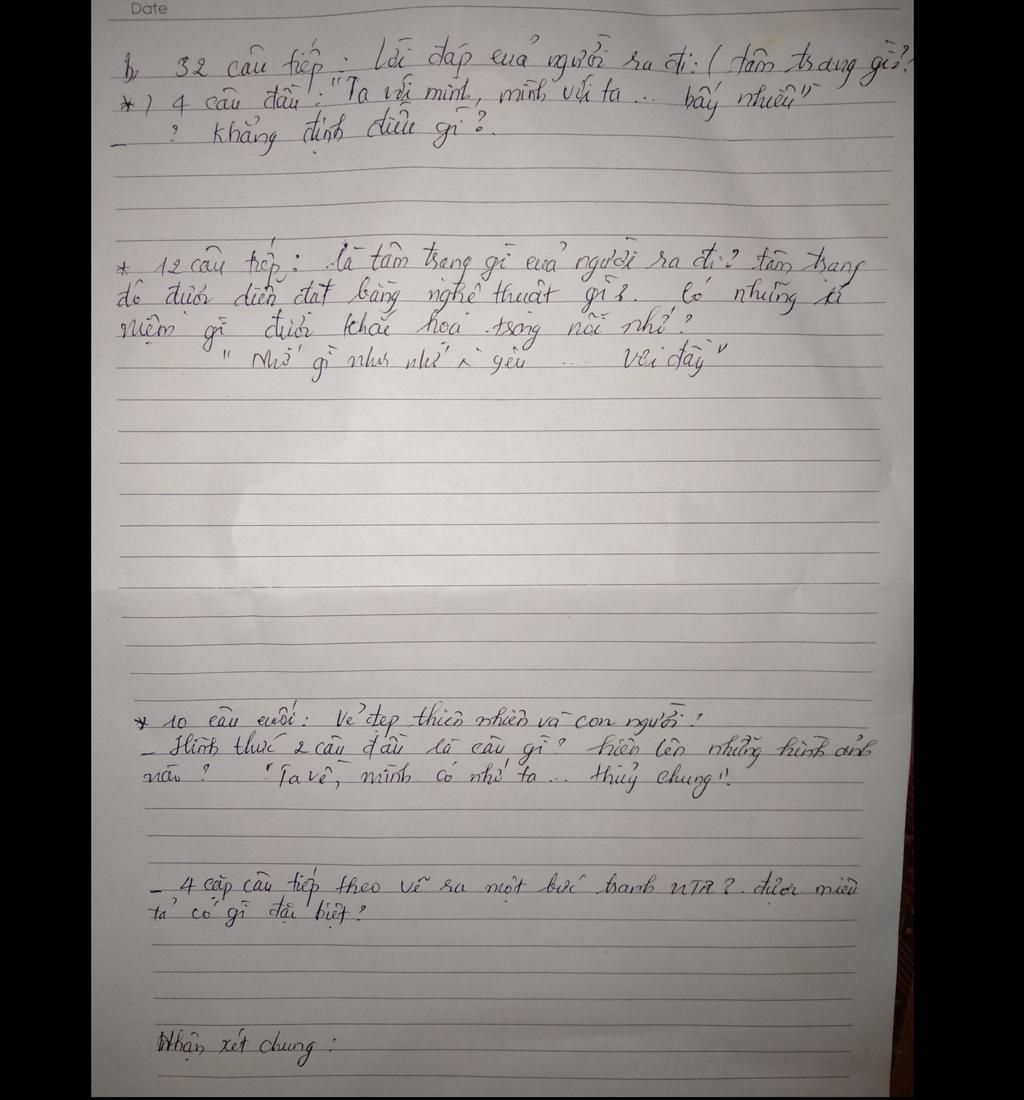 Date
b, 32 câu tiếp : Lời đáp của người ra đi: ( tâm trạng gì?
*) 4 câu đầu : "Ta với mình, mình với ta ... bấy nhiêu"
_ ? khẳng định điều gì ?.
* 12 câu tiếp : là tâm trạng gì của người ra đi? tâm trạng
đó được diễn đạt bằng nghệ thuật gì?. Có những kỉ
niệm gì được khắc hoạ trong nỗi nhớ?
" Nhớ gì như nhớ n yêu ... vơi đầy"
* 10 câu cuối : Vẻ đẹp thiên nhiên và con người?
_ Hình thức 2 câu đầu là câu gì ? hiện lên những hình ảnh
nào ? "Ta về, mình có nhớ ta ... thuỷ chung".
_ 4 cặp câu tiếp theo vẽ ra một bức tranh NTR ? được miêu
tả có gì đặc biệt ?
Nhận xét chung :